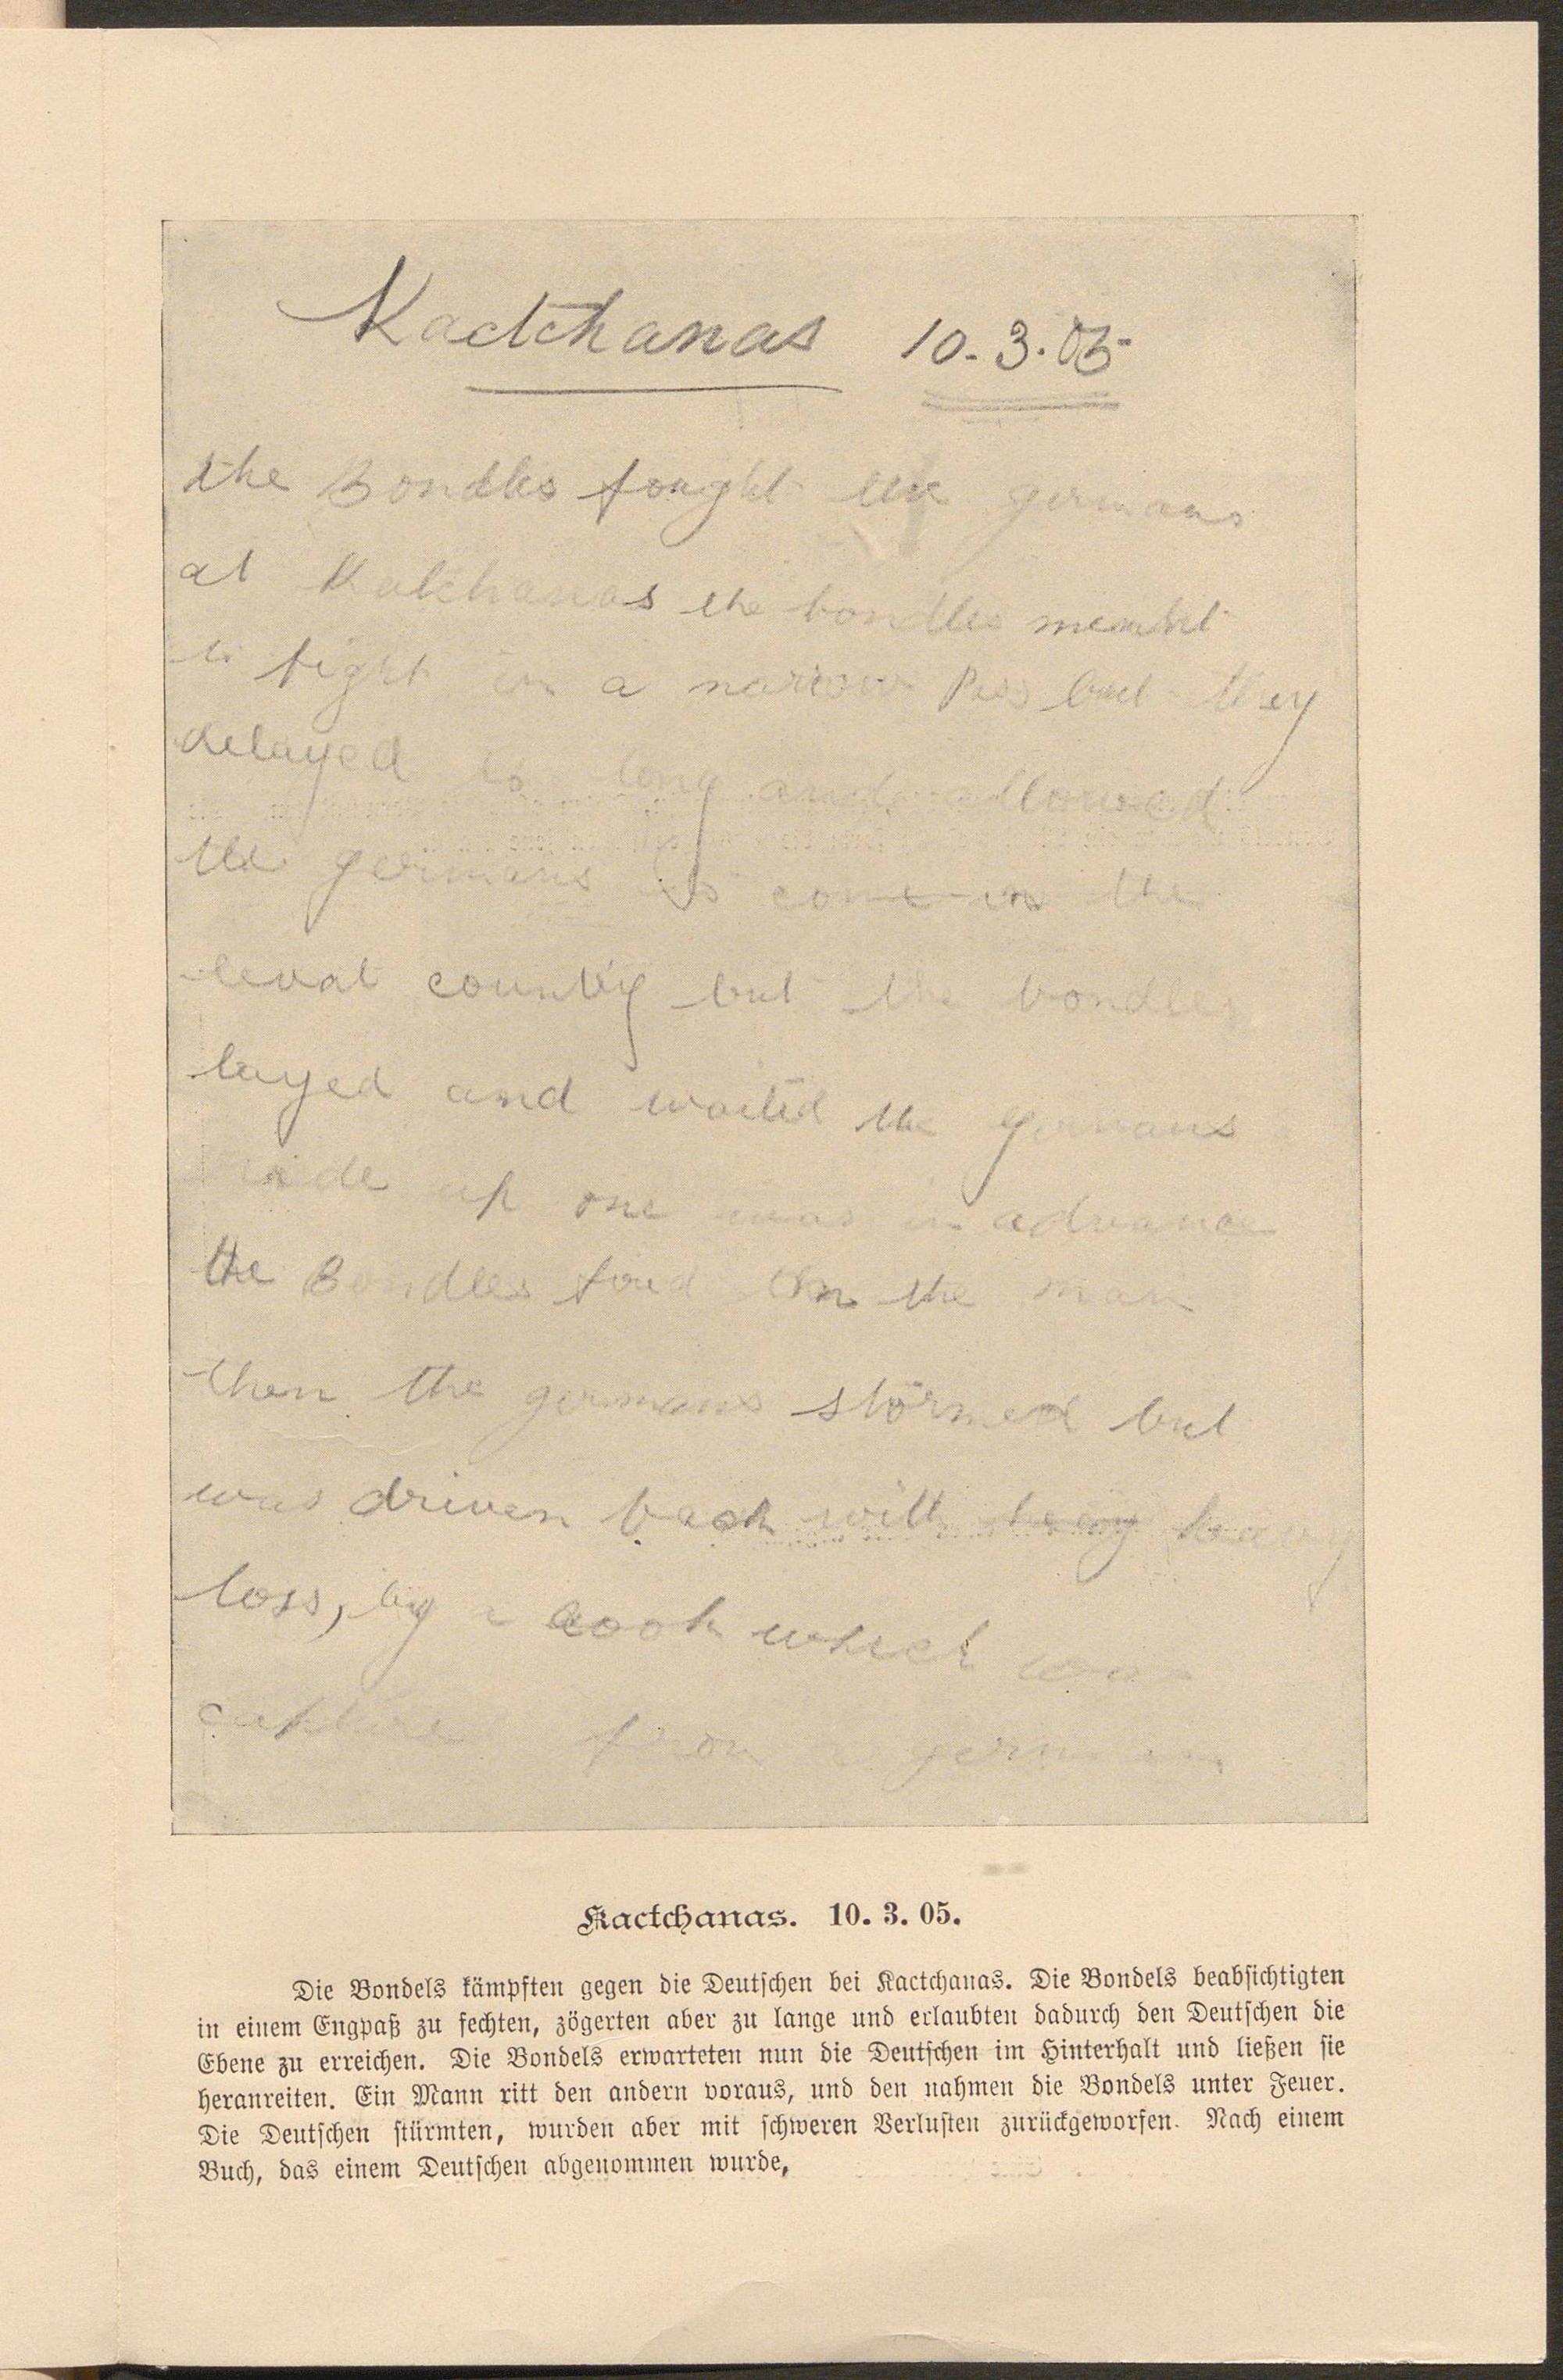 Kactchanas 10.3.05
the Bondles fought the germans
at Katchanas the bondles meant
to fight in a narrow Pass but they
delayed to long and allowed
the germans to come in the
leval country but the bondles
layed and waited the germans
ride up one was in advance
the Bondles fired on the man
then the germans stormed but
was driven back with heavy
loss, by a book which was
captured from a german
Kactchanas. 10. 3. 05.
Die Bondels kämpften gegen die Deutschen bei Kactchanas. Die Bondels beabsichtigten
in einem Engpaß zu fechten, zögerten aber zu lange und erlaubten dadurch den Deutschen die
Ebene zu erreichen. Die Bondels erwarteten nun die Deutschen im Hinterhalt und ließen sie
heranreiten. Ein Mann ritt den andern voraus, und den nahmen die Bondels unter Feuer.
Die Deutschen stürmten, wurden aber mit schweren Verlusten zurückgeworfen. Nach einem
Buch, das einem Deutschen abgenommen wurde,